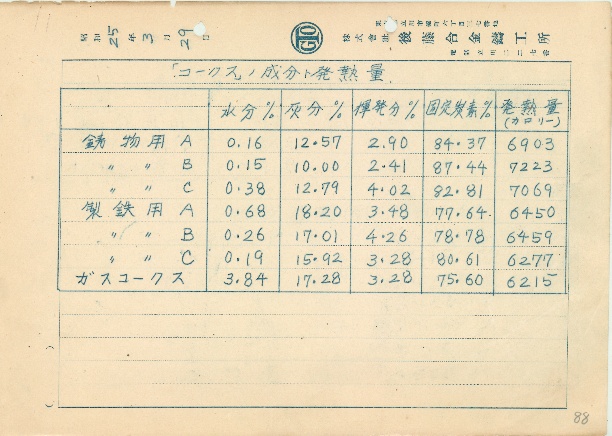 昭和25年3月29日
GTO
株式会社 後藤合金鋳工所
「コークス」ノ成分ト発熱量
水分% 灰分% 揮発分% 固定炭素% 発熱量(カロリー)
鋳物用 A 0.16 12.57 2.90 84.37 6903
〃 〃 B 0.15 10.00 2.41 87.44 7223
〃 〃 C 0.38 12.79 4.02 82.81 7069
製鉄用 A 0.68 18.20 3.48 77.64 6450
〃 〃 B 0.26 17.01 4.26 78.78 6459
〃 〃 C 0.19 15.92 3.28 80.61 6277
ガスコークス 3.84 17.28 3.28 75.60 6215
88